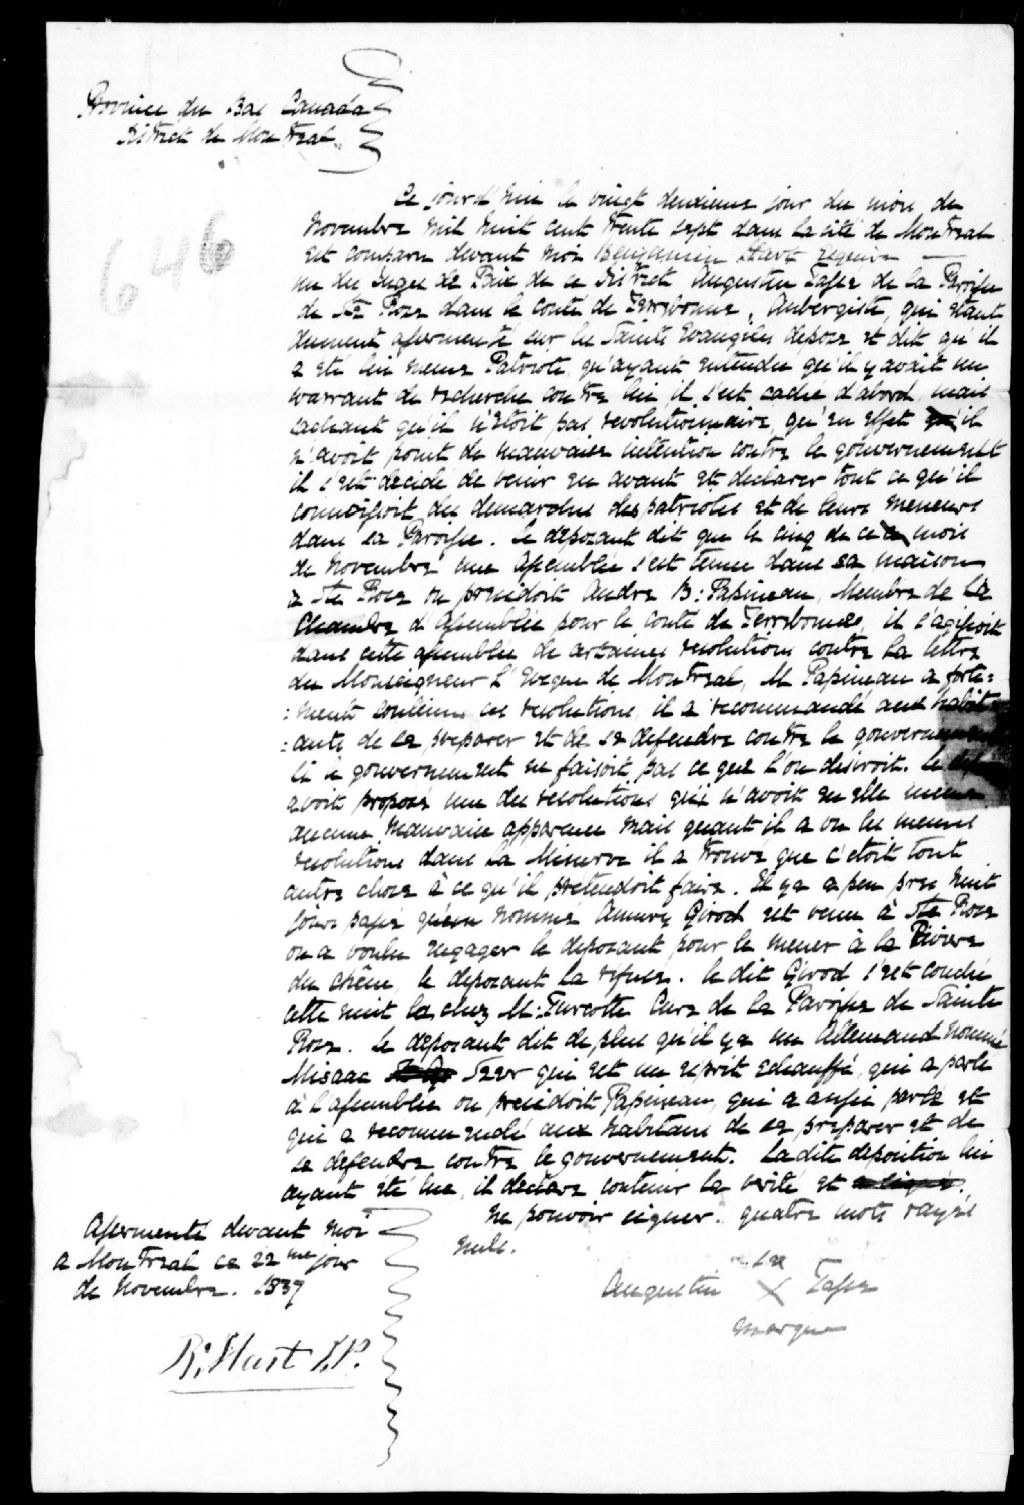 Province du Bas Canada
District de Montreal
646
Ce jourd'hui le vingt deuxieme jour du mois de
Novembre mil huit cent trente sept dans la cité de Montreal
est comparu devant moi Benjamin Hart Ecuier
un des Juges de Paix de ce District Augustin Tassé de la Paroisse
de Ste Rose dans le comté de Terrebonne, Aubergiste, qui étant
dument assermenté sur les Saints Evangiles depose et dit qu'il
a été lui meme Patriote, qu'ayant entendu qu'il y avait un
warrant de recherche contre lui il s'est caché d'abord, mais
sachant qu'il n'étoit pas revolutionnaire, qu'en effet qu'il
n'avoit point de mauvaise intention contre le gouvernement
il s'est décidé de venir en avant et declarer tout ce qu'il
connoissoit des demarches des patriotes et de leurs meneurs
dans sa Paroisse. Le déposant dit que le cinq de ce mois
de Novembre une Assemblée s'est tenue dans sa maison
a Ste Rose ou présidoit Andre B: Papineau, Membre de la
Chambre d'Assemblée pour le comté de Terrebonne, il s'agissoit
dans cette assemblée de certaines resolutions contre la lettre
du Monseigneur L'Eveque de Montreal, M Papineau a forte=
=ment soutenu ces resolutions, il a recommandé aux habit=
=ants de se preparer et de se defendre contre le gouvernement
si le gouvernement ne faisoit pas ce que l'on desiroit. Le
avoit proposé une des resolutions qui n'avoit en elle meme
aucune mauvaise apparence mais quant il a vu les memes
resolutions dans la Minerve il a trouvé que c'etoit tout
autre chose à ce qu'il prétendoit faire. Il y a a peu pres huit
jours passé qu'un nommé Amury Girod est venu à Ste Rose
ou a voulu engager le deposant pour le mener à la Riviere
du chêne, le déposant la refusé. le dit Girod s'est couché
cette nuit la chez M: Turcotte Curé de la Paroisse de Sainte
Rose. Le déposant dit de plus qu'il y a un Allemand nommé
Misaac qui est un esprit echauffé, qui a parlé
à l'assemblée ou presidoit Papineau, qui a aussi parlé et
qui a recommendé aux habitans de se preparer et de
se defendre contre le gouvernement. La dite déposition lui
ayant été lue, il declare contenir la verité et a signé.
ne pouvoir signer. quatre mots rayés
nuls.
Assermenté devant moi
a Montreal ce 22me jour
de Novembre. 1837
sa
Augustin X Tassé
marque
B: Hart J.P.